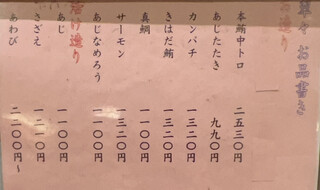 お品書き
お造り
本鮪中トロ 二五三〇円
あじたたき 九九〇円
カンパチ 一三二〇円
きはだ鮪 一三二〇円
真鯛 一一〇〇円
サーモン 一三二〇円
あじなめろう 一一〇〇円
活け造り
あじ 一一〇〇円
さざえ 一二一〇円
あわび 二二〇〇円~